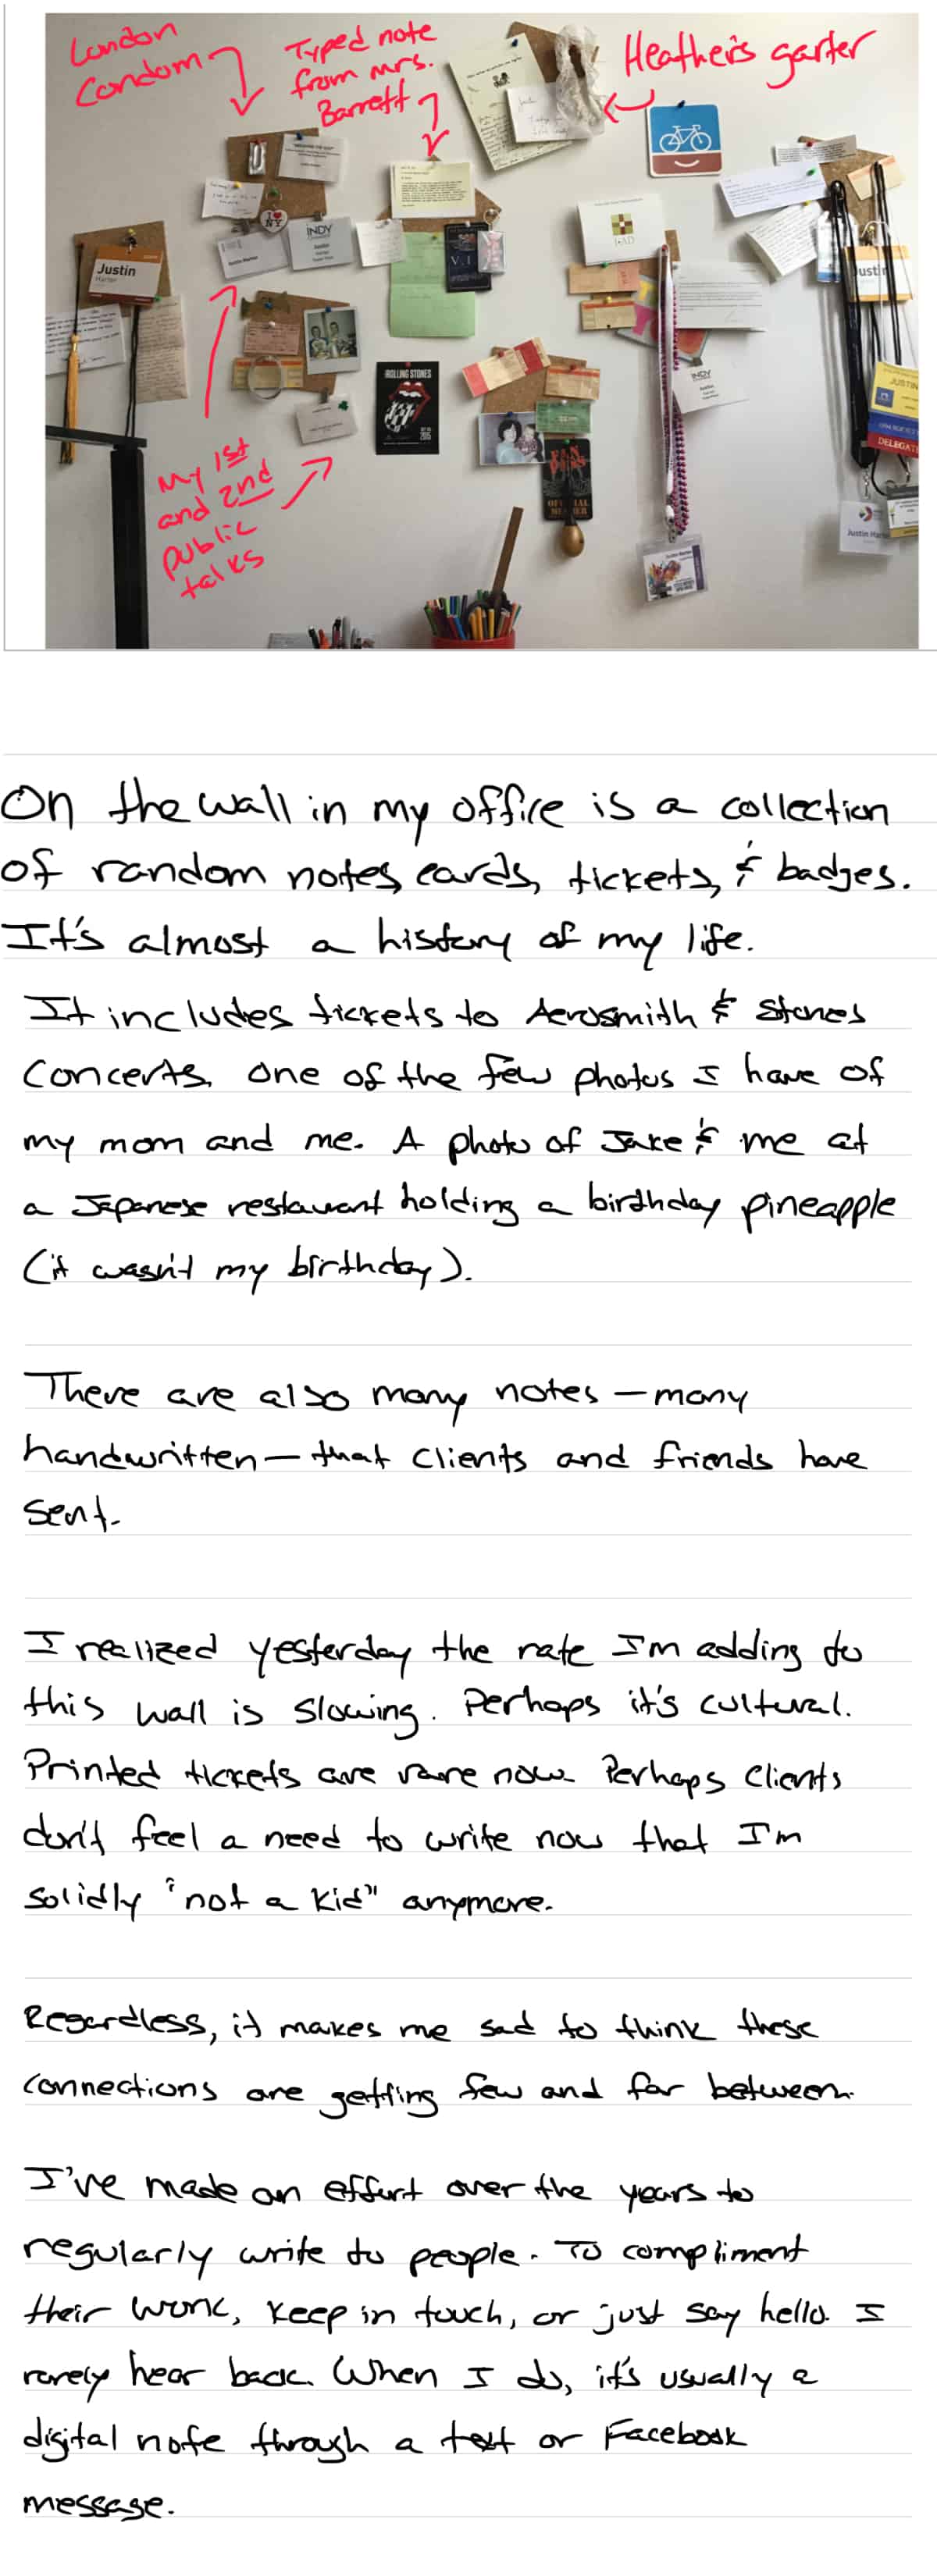 London
Condom
Typed note
from Mrs.
Barrett
Heather's garter
I ♥
NY
INDY
Justin
Justin
V.I
I·AD
ROLLING STONES
INDY
FAN
JUSTIN
DELEGATE
Justin Har
My 1st
and 2nd
public
talks
On the wall in my office is a collection
of random notes, cards, tickets, & badges.
It's almost a history of my life.
It includes tickets to Aerosmith & Stones
concerts. One of the few photos I have of
my mom and me. A photo of Jake & me at
a Japanese restaurant holding a birthday pineapple
(it wasn't my birthday).
There are also many notes – many
handwritten – that clients and friends have
sent.
I realized yesterday the rate I'm adding to
this wall is slowing. Perhaps it's cultural.
Printed tickets are rare now. Perhaps clients
don't feel a need to write now that I'm
solidly "not a kid" anymore.
Regardless, it makes me sad to think these
connections are getting few and far between.
I've made an effort over the years to
regularly write to people. To compliment
their work, keep in touch, or just say hello. I
rarely hear back. When I do, it's usually a
digital note through a text or Facebook
message.